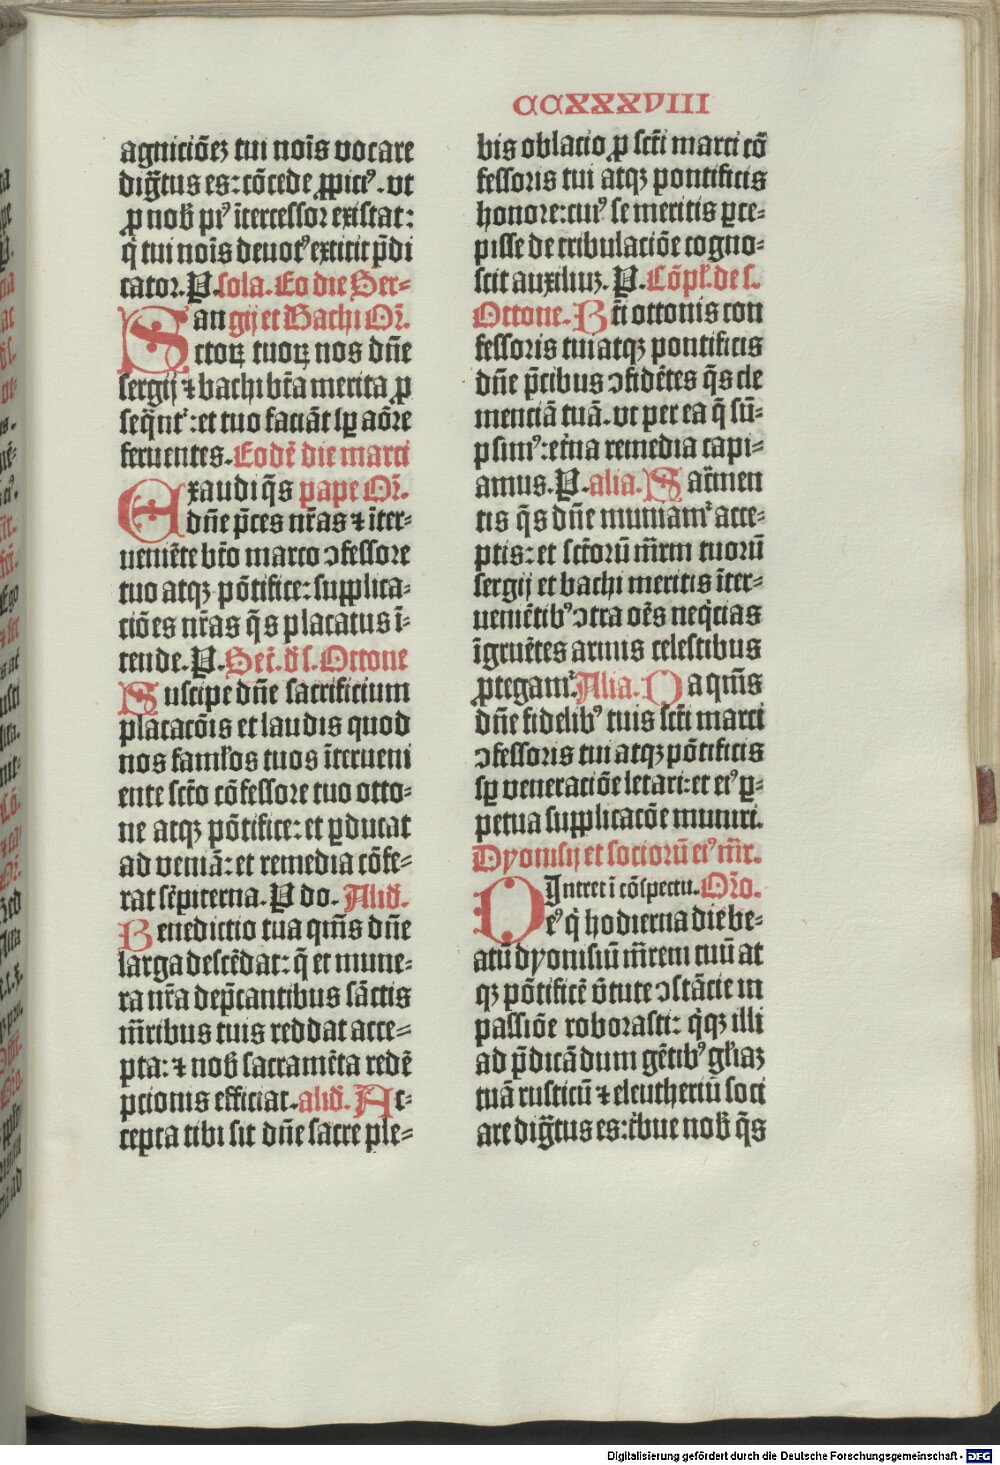 CCXXXVIII
agniciōēz tui noīs vocare
dig̃tus es: cōcede ꝓpiciꝰ. vt
ꝓ nob̄ piꝰ ītercessor existat:
q̄ tui noīs deuotꝰ extitit p̄di
cator. P. sola. Eo die Ser-
San gij et Bachi Or̄.
ctoꝝ tuoꝝ nos dn̄e
sergij ⁊ bachi bt̄a merita ꝓ
seq̄ntʳ: et tuo faciāt sꝑ aōre
feruentes. Eodē die marci
Exaudi q̄s pape Or̄.
dn̄e p̄ces nr̄as ⁊ īter-
ueniēte bt̄o marco ɔfessore
tuo atqꝫ pōtifice: supplica-
ciōes nr̄as q̄s placatus ī-
tende. P. Sec̄. d̄ s. Ottone
Suscipe dn̄e sacrificium
placacōis et laudis quod
nos famłos tuos īterueni
ente sct̄o cōfessore tuo otto-
ne atqꝫ pōtifice: et ꝑducat
ad veniā: et remedia cōfe-
rat sēpiterna. P do. Aliđ.
Benedictio tua qm̄s dn̄e
larga descēdat: q̄ et mune-
ra nr̄a dep̄cantibus sāctis
mr̄ibus tuis reddat acce-
pta: ⁊ nob̄ sacramēta redē
pcionis efficiat. aliđ. Ac-
cepta tibi sit dn̄e sacre ple-
bis oblacio ꝓ scti marci cō
fessoris tui atqꝫ pontificis
honore: cuiꝰ se meritis ꝑce-
pisse de tribulaciōe cogno-
scit auxiliuꝫ. P. Cōpł. de s.
Ottone. Bt̄i ottonis con
fessoris tui atqꝫ pontificis
dn̄e p̄cibus ɔfidētes q̄s cle
menciā tuā. vt per ea q̄ sū-
psimꝰ: et̄na remedia capi-
amus. P. alia. Sac̄men
tis q̄s dn̄e muniamʳ acce-
ptis: et sct̄orū mr̄m tuorū
sergij et bachi meritis īter-
ueniētibꝰ ɔtra oēs neq̄cias
īgruētes armis celestibus
ꝓtegamʳ. Alia. Da qm̄s
dn̄e fidelibꝰ tuis sct̄i marci
ɔfessoris tui atqꝫ pōtificis
sꝑ veneraciōe letari: et eiꝰ ꝑ-
petua supplicacōe muniri.
Dyonisij et sociorū eiꝰ mr̄.
Intret ī cōspectu. Or̄o.
Deꝰ q̄ hodierna die be-
atū dyonisiū mr̄em tuū at
qꝫ pōtificē v̄tute ɔstācie in
passiōe roborasti: q̄qꝫ illi
ad p̄dicādum gētibꝰ gl̄iaꝫ
tuā rusticū ⁊ eleutheriū soci
are dig̃tus es: t̄bue nob̄ q̄s
Digitalisierung gefördert durch die Deutsche Forschungsgemeinschaft - DFG